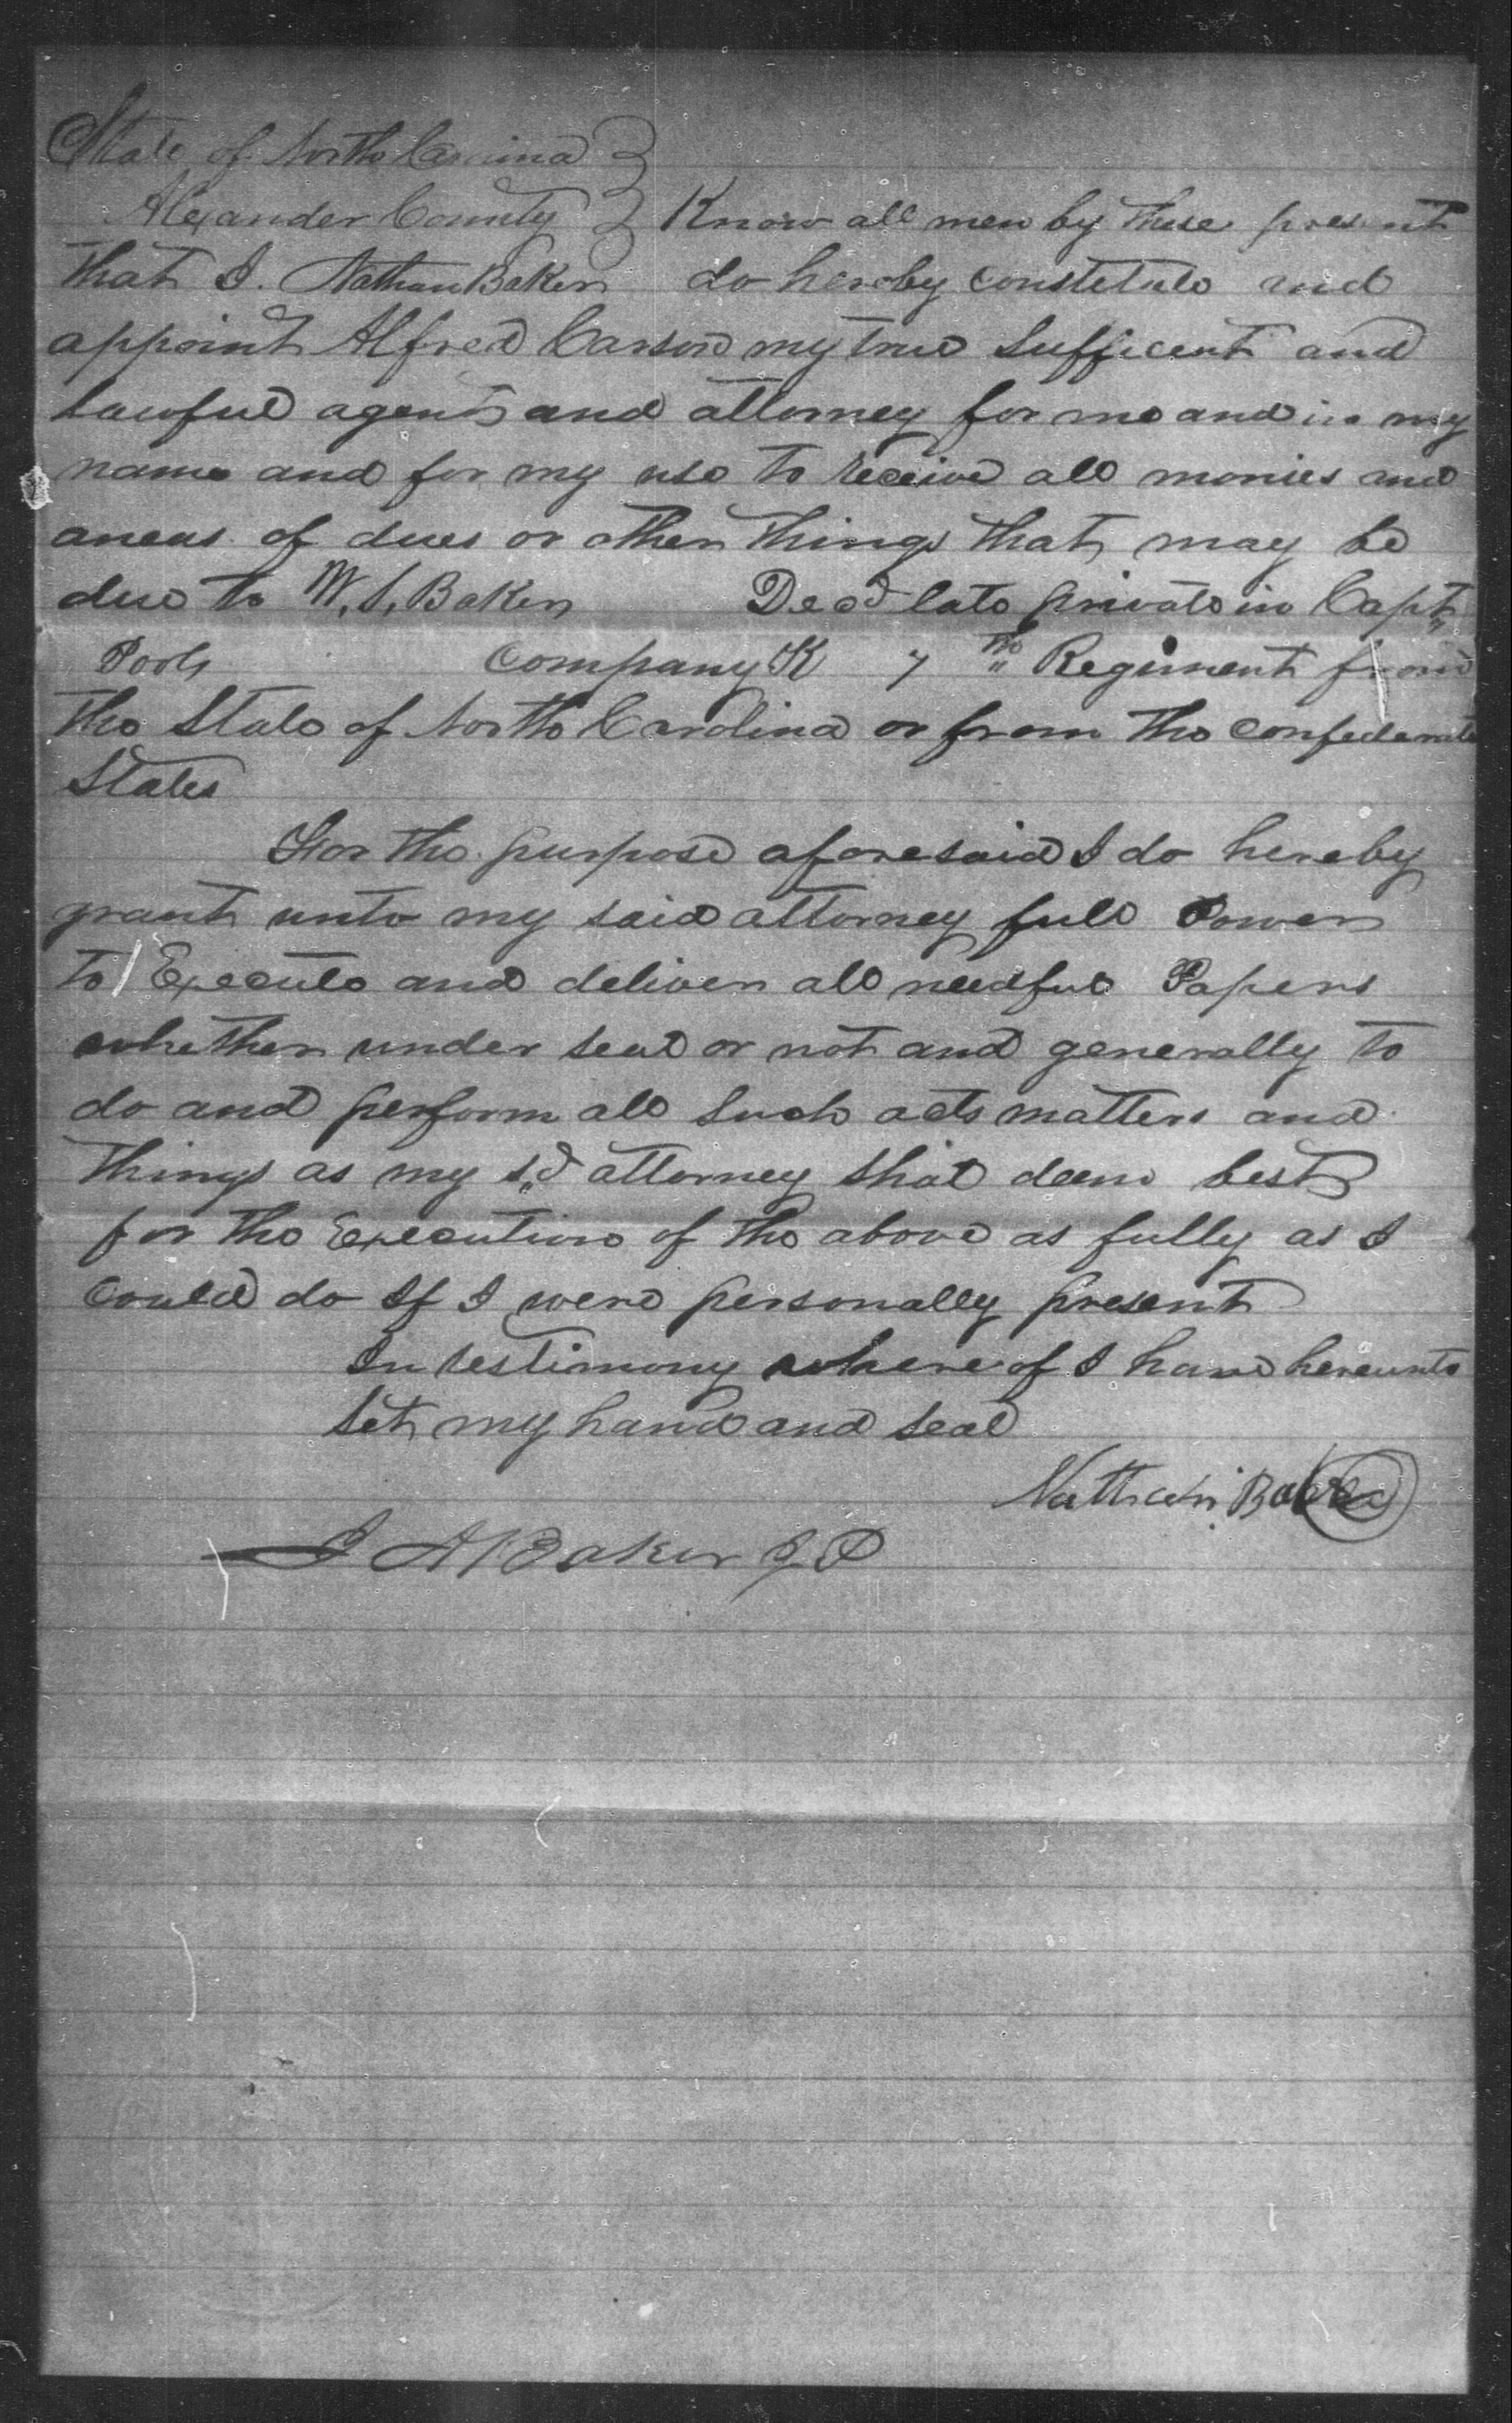 State of North Carolina }
Alexander County } Know all men by these present
that I. Nathan Baker do hereby constitute and
appoint Alfred Carson my true sufficent and
lawful agent and attorney for me and in my
name and for my use to receive all monies and
arreas of dues or other things that may be
due to W. S. Baker Decd late private in Capt
Pools Company K 7 th Regiment from
the State of North Carolina or from the confederate
States
For the purpose aforesaid I do hereby
grant unto my said attorney full Power
to Execute and deliver all needful Papers
whether under seal or not and generally to
do and perform all such acts matters and
things as my sd attorney shal deem best
for the Execution of the above as fully as I
could do If I were personally present
In testimony where of I have hereunto
set my hand and seal
Nathan Baker
J A Baker J P